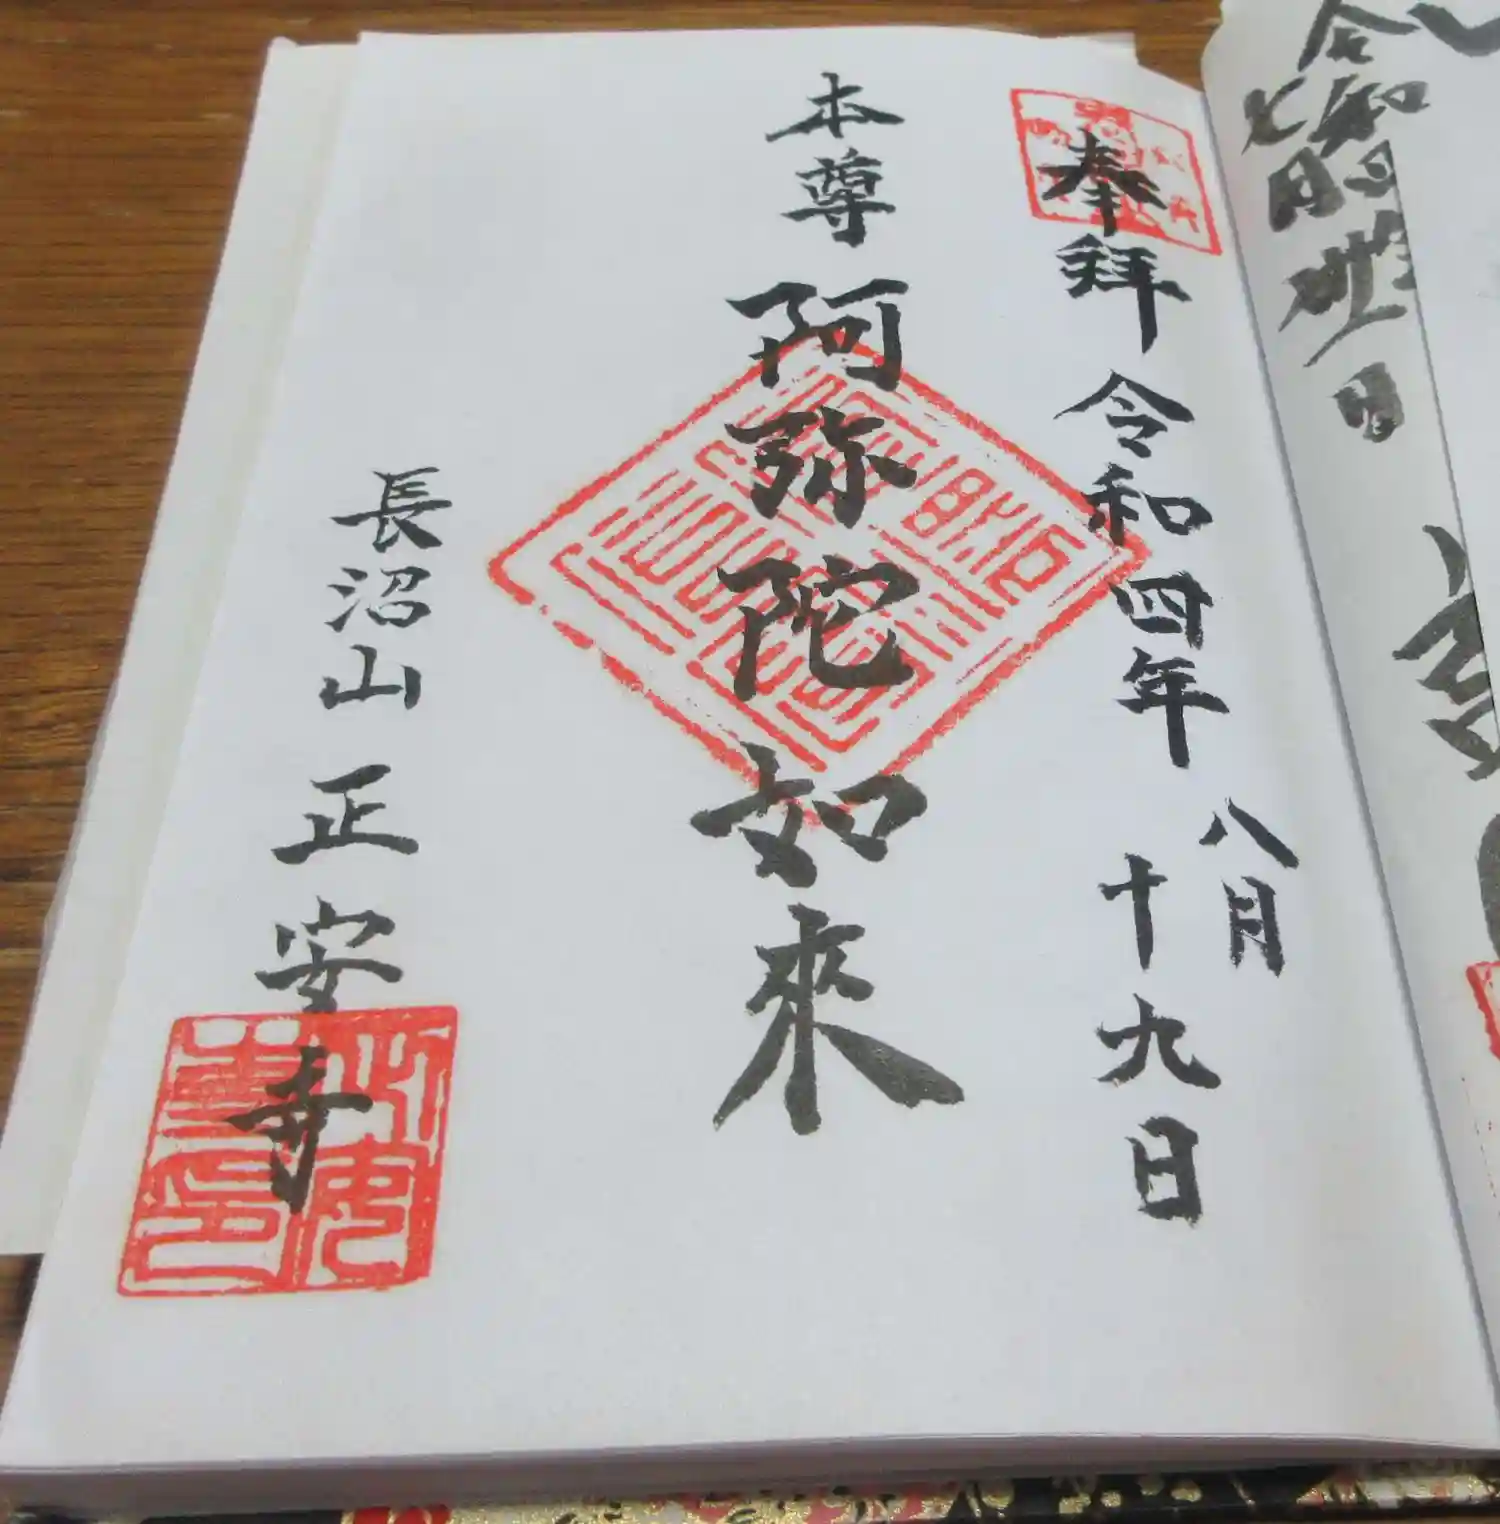 奉拝 令和四年 八月
十九日
本尊 阿弥陀如來
長沼山 正安寺
令和
七月
日